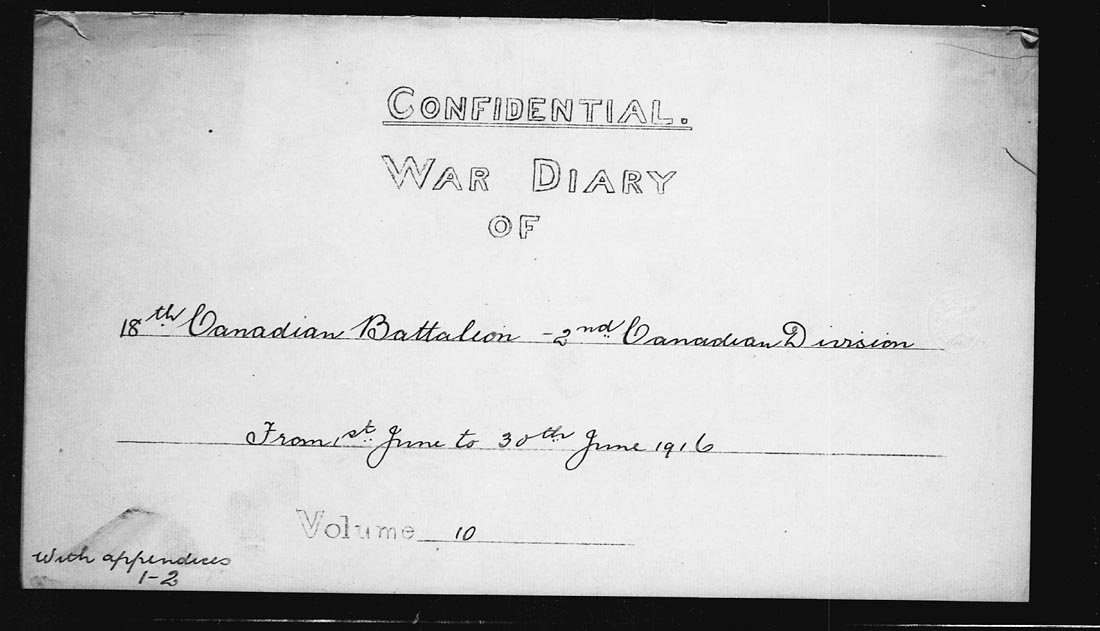 CONFIDENTIAL.
WAR DIARY
OF
18th Canadian Battalion - 2nd Canadian Division
From 1st June to 30th June 1916
Volume 10
With appendices
1-2